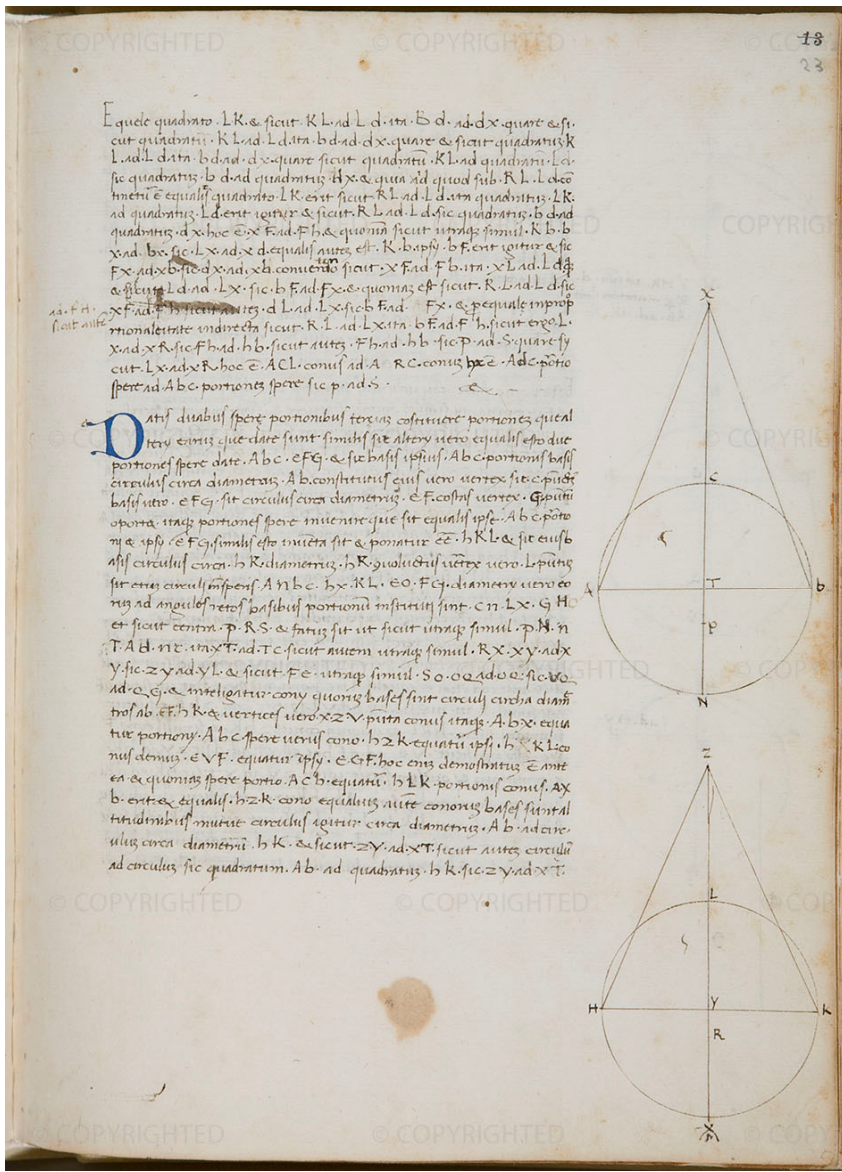 13
23
Equele quadrato · L K · & sicut · K L · ad · L d · ita · B d · ad · d x · quare & si·
cut quadratū · K L · ad · L d · ita · b d · ad · d x · quare & sicut quadratuʒ · K
L · ad · L d · ita · b d · ad · d x · quare sicut quadratū · K L · ad quadratū · L d ·
sic quadratuʒ · b d · ad quadratuʒ · d x · & quia id quod sub · R L · L d · cō
tinetū ē equalis quadrato · L K · erit sicut R L · ad · L d · ita quadratuʒ · L K ·
ad quadratuʒ · L d · erit igitur & sicut · R L · ad · L d · sic quadratuʒ · b d · ad
quadratuʒ · d x · hoc ē · x F · ad · F h · & quoniā sicut utraqʒ simul · K b · b
x · ad · bx · sic · L x · ad · x d · equalis auteʒ est · K · b · ipsy · b F · erit igitur & sic
F x · ad · x b · sic · d x · ad · x b · sicut · x F · ad · F b · ita · x L · ad · L d
& sicut L d · ad · L x · sic · b F · ad · F x · & quoniaʒ est sicut · R · L · ad · L d · sic
x F · ad · F h sicut auteʒ · d L · ad · L x · sic · b F · ad · F x · &
ad · F H ·
sicut aute
indirecta sicut · R · L · ad · L x · ita · b F · ad · F h · sicut ergo · L ·
x · ad · x R · sic · F h · ad · h b · sicut auteʒ · F h · ad · h b · sic · P · ad · S · quare sy
cut · L x · ad · x R · hoc ē · A C L · conus ad · A R C · conuʒ ē · A d C · portio
spere ad · A b c · portioneʒ spere sic p · ad · S ·
Datis duabus spere portionibus terciaʒ costituere portioneʒ que al
tery earuʒ que date sunt similis sit altery vero equalis esto due
portiones spere date · A b c · e F G · & sit basis ipsius · A b c · portionis basis
circulus circa diametruʒ · A b · constitutus eius vero vertex sit · c · puncty
basis vero · e F G · sit circulus circa diametruʒ · e F · vertex · G · punty
oportʒ itaqʒ portiones spere invenire que sit equalis ipsi · A b c · portio
ni & ipsy · e F G · similis esto inventa sit & ponatur eē · h K L · & sit eius b
asis circulus circa · h K · diametruʒ · h K · vertex vero · L · puntus
sit etiaʒ circuli · A n b c · h x · K L · e O · F G · diametry vero eo
ruʒ ad angules retos basibus portionū instituti sint · c n · L x · G H
et sicut centra · P · R S · & fatuʒ sit ut sicut utraqʒ simul · P · N · n
T · ad · n t · ita x T · ad · T c · sicut autem utraqʒ simul · R x · x y · ad x
y · sic · z y ad · y L · & sicut · F e · utraqʒ simul · S o · o Q ad · o Q · sic · V Q
ad · Q G · & inteligatur cony quoruʒ bases sint circuli circha diam
tros ab · eF · h K · & vertices vero x · z V · puta conus itaqʒ · A · b x · equa
tur portiony · A b c · spere verius cono · h z K · equatū ipsy · h K L · co
nus demuʒ · e V F · equatur ipsy · e G F · hoc eniʒ demostratuʒ ē ante
ea & quoniaʒ spere portio · A c b · equatū · h L K · portionis conus · A x
b · erit & equalis · h z K · cono equaliuʒ aute conoruʒ bases sunt al
titudinibus mutue circulus igitur circa diametruʒ · A b · ad circ·
ulus circa diametrū · h K · & sicut · z y · ad · x T · sicut auteʒ circulu
ad circuluʒ sic quadratum · A b · ad quadratuʒ · h K · sic · z y · ad · x T ·
X
C
A
T
b
P
N
Z
L
H
Y
K
R
X
© COPYRIGHTED